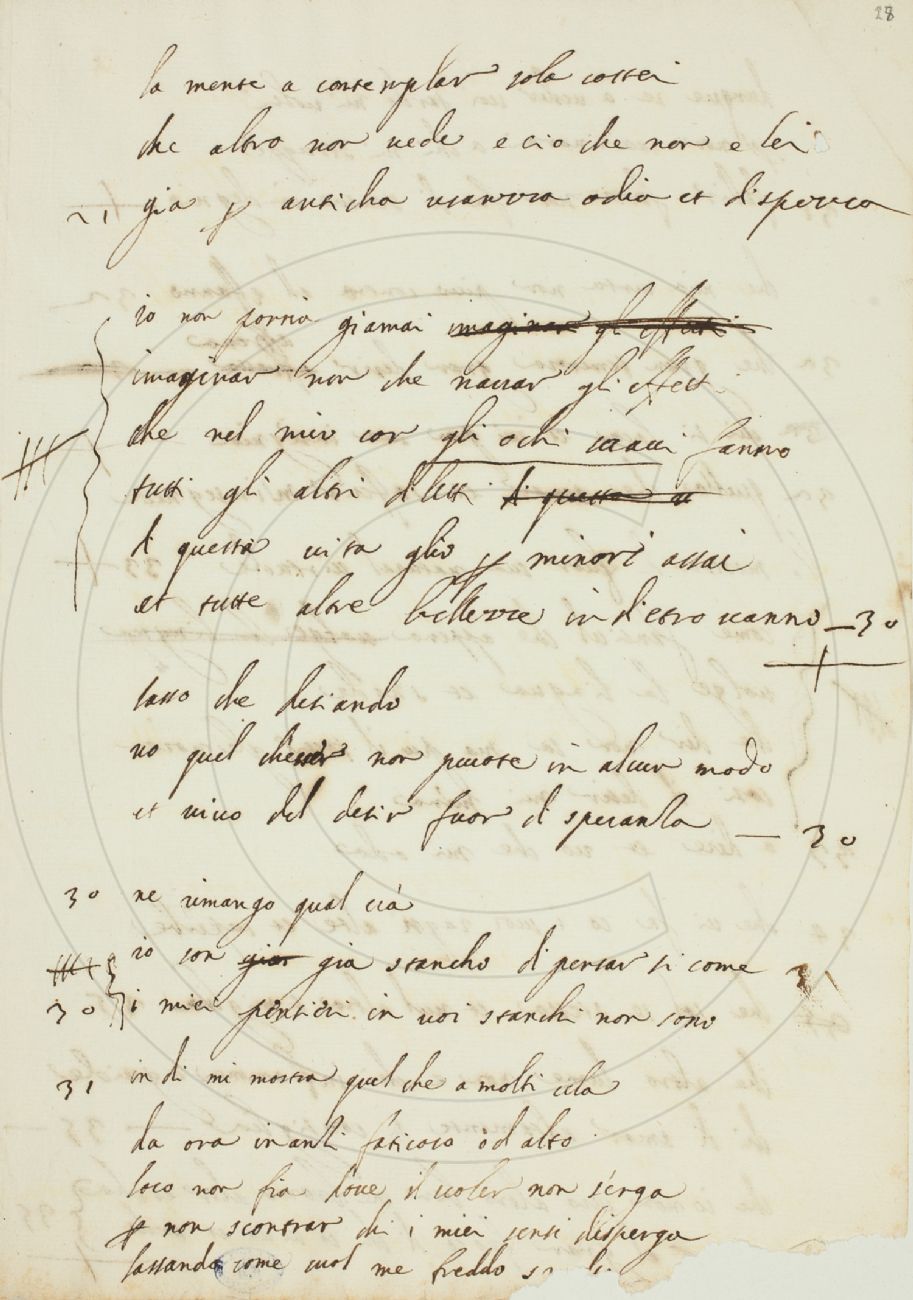 28
la mente a contemplar sola costei
che altro non vede e cio che non e lei
21 gia p anticha usanza odia et disprezza
io non porria giamai imaginare gli effetti
imaginar non che narrar gli effecti
che nel mio cor gli ochi soavi fanno
tutti gli altri diletti di questa ui
di questa vita gl'io p minori assai
et tutte altre bellezze indietro vanno — 30
lasso che desiando
vo quel che non puote in alcun modo
et vivo del desir fuor di speranza — 30
30 ne rimango qual era
io son gia stancho di pensar si come 3
30 i miei pensieri in voi stanchi non sono
31 indi mi mostra quel che a molti cela
da ora inanzi faticoso od alto
loco non fia dove il voler non s'erga
p non scontrar chi i miei sensi disperga
lassando come suol me freddo